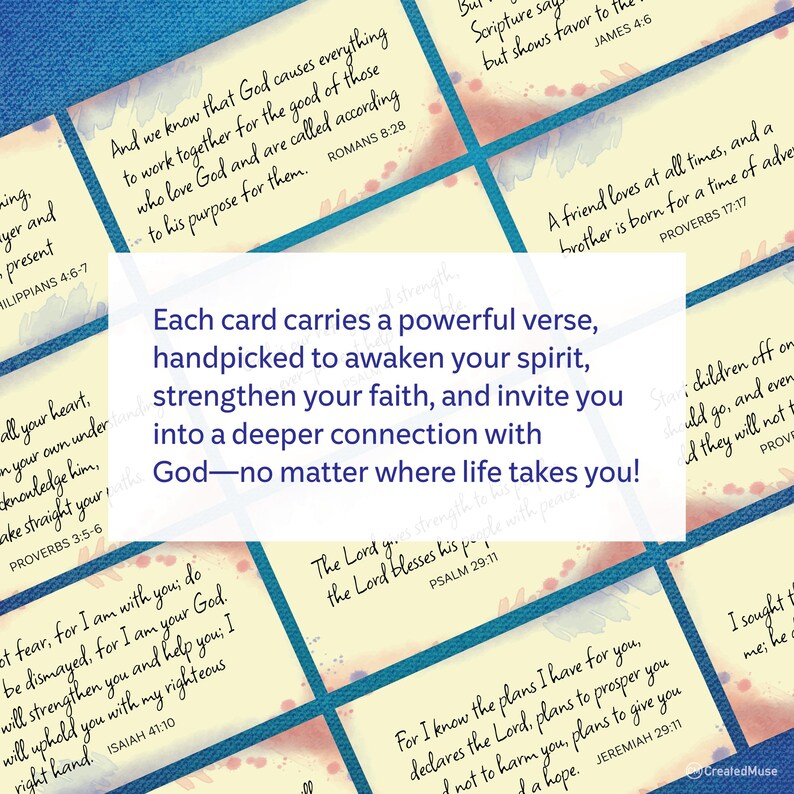 But
Scripture says
but shows favor to the
JAMES 4:6
And we know that God causes everything
to work together for the good of those
who love God and are called according
to his purpose for them.
ROMANS 8:28
A friend loves at all times, and a
brother is born for a time of
PROVERBS 17:17
and
present
4:6-7
and strength,
Each card carries a powerful verse,
handpicked to awaken your spirit,
strengthen your faith, and invite you
into a deeper connection with
God—no matter where life takes you!
children off on
go, and
they will not
all your heart,
your own
him,
straight your paths.
PROVERBS 3:5-6
The Lord gives strength to his
the Lord blesses his people with peace.
PSALM 29:11
fear, for I am with you; do
be dismayed, for I am your God.
will strengthen you and help you; I
will uphold you with my righteous
right hand.
ISAIAH 41:10
For I know the plans I have for you,
declares the Lord, plans to prosper you
not to harm you, plans to give you
a hope.
JEREMIAH 29:11
I sought
me; he
CreatedMuse